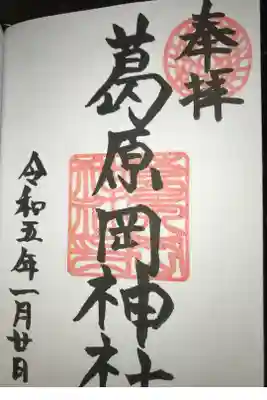 奉拝
葛原岡神社
令和五年一月廿日